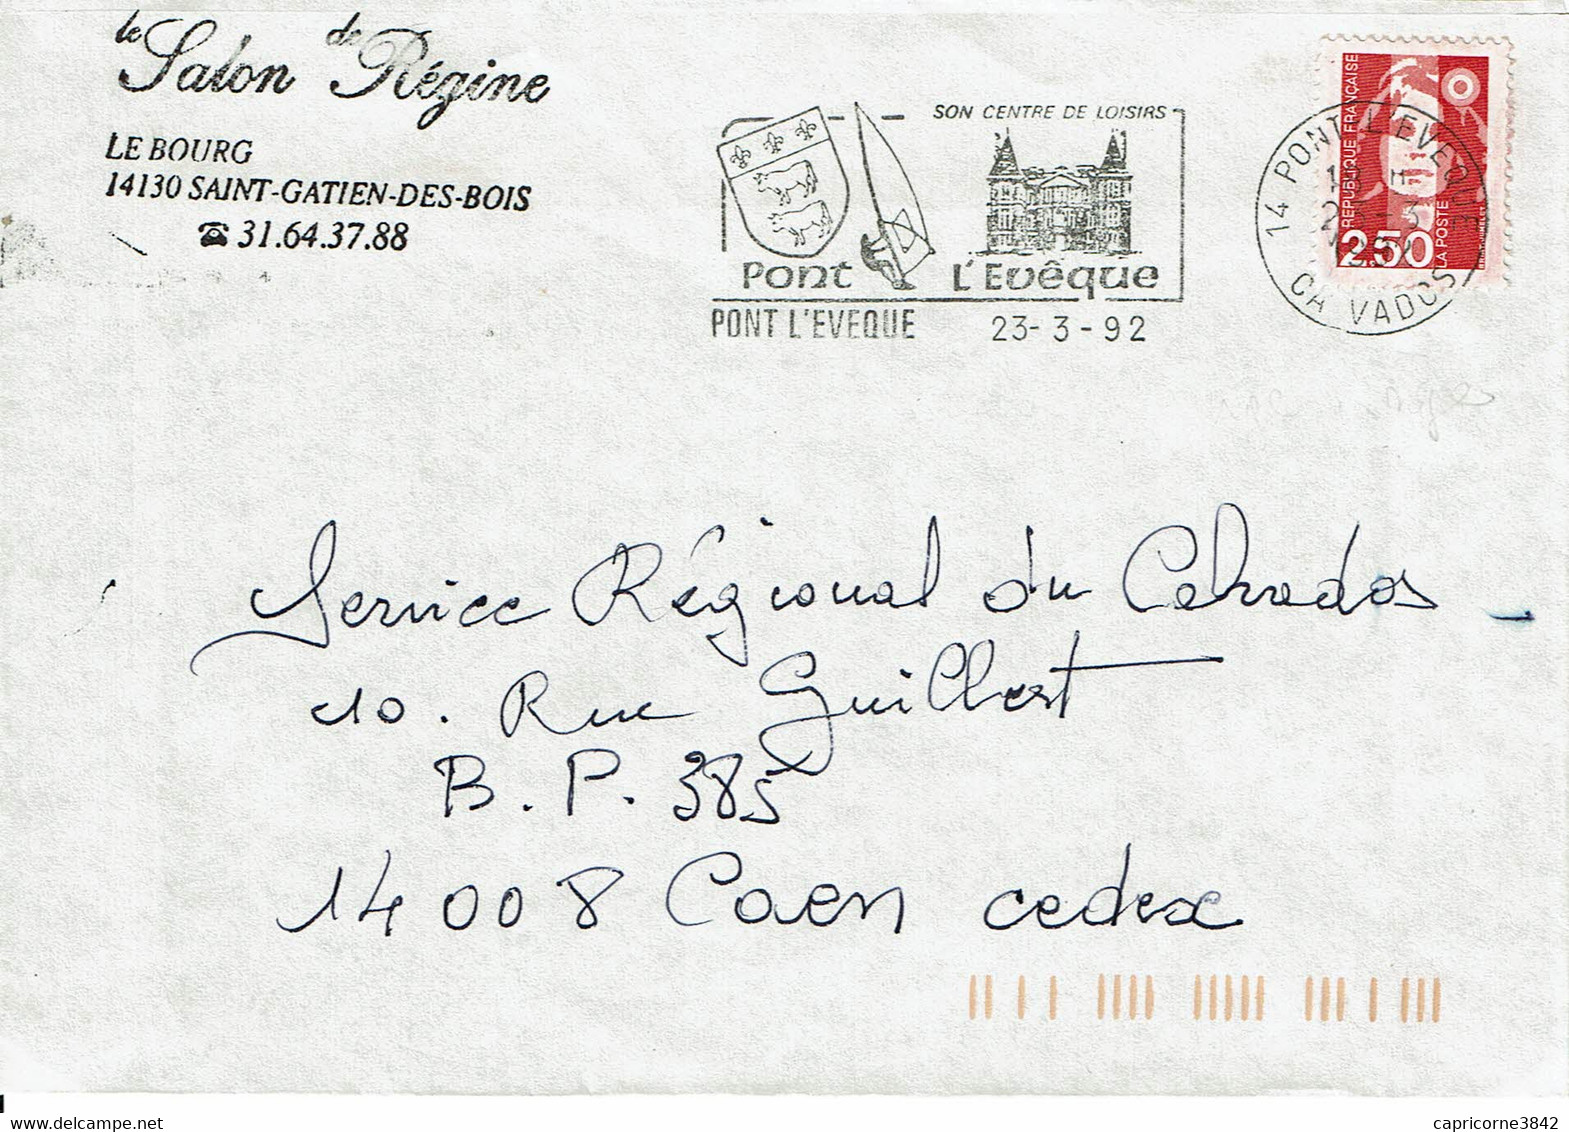 le Salon de Régine
LE BOURG
14130 SAINT-GATIEN-DES-BOIS
☎ 31.64.37.88
SON CENTRE DE LOISIRS
Pont L'Evêque
PONT L'EVEQUE 23-3-92
14 PONT L'EVEQUE
CA VADOS
REPUBLIQUE FRANÇAISE
2.50
LA POSTE
Service Régional du Calvados
10. Rue Guillbert
B.P. 385
14008 Caen cedex
capricorne3842